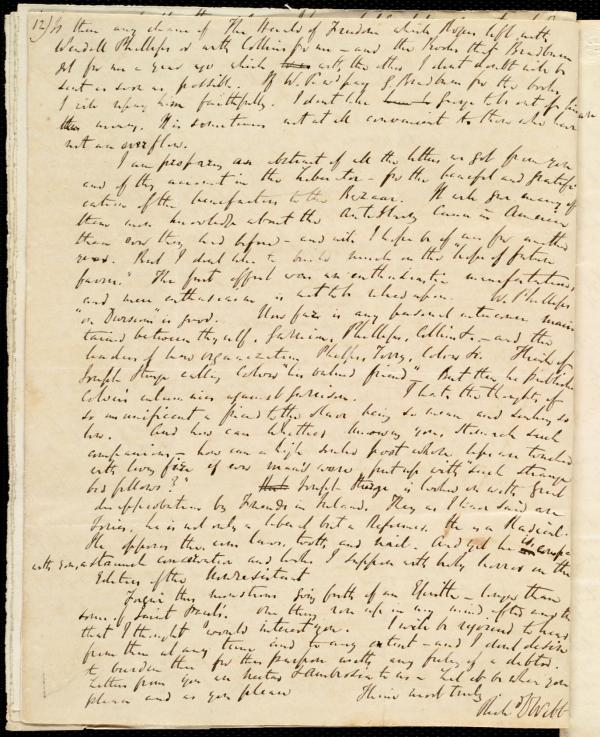 12) Is there any chance of The Herald of Freedom which Rogers left with
Wendell Phillips or with Collins for me - and the Books that Bradburn
got for me a year ago which with the other I don't doubt will be
sent as soon as possible. If W. P. pay G. Bradburn for the books
I will repay him faithfully. I don't like George to be out of
money. It is sometimes not at all convenient to those who have
not an overflow.
I am preparing an abstract of all the letters we got from you
and of the account in the Liberator - for the benefit and gratifi
cation of the benefactors to the Bazaar. It will give many of
them more knowledge about the Anti Slavery Cause in America
than ever they had before - and will I hope be of use for another
year. But I don't like to build much on the "hope of future
favors." The first effort was an enthusiastic manifestation,
and mere enthusiasm is not to be relied upon. W. Phillips
"on Division" is good. How far is any personal intercourse main
tained between thyself, Garrison, Phillips, Collins &c. - and the
leaders of new organization Phelps, Torry, Colver &c. Think of
Joseph Sturge calling Colver "his valued friend" But then he published
Colver's calumnies against Garrison. I hate the thoughts of
so munificent a friend to the slave being so mean and sinking so
low. And how can Whittier knowing you, stomach such
companions - how can a high souled poet whose lips are touched
with living fire if ever man's were, put up with such strange
bed fellows?"
Joseph Sturge is looked on with great
disapprobation by Friends in Ireland. They as I have said are
Tories, he is not only a liberal but a Reformer. He is a Radical.
He opposes the corn laws, tooth and nail. And yet he is
with you, a staunch conservative and looks I suppose with holy horror on the
Editors of the Nonresistant
Forgive this monstrous long birth of an Epistle - longer than
some of Saint Paul's. One thing rose up in my mind after another
that I thought would interest you. I will be rejoiced to hear
from thee at any time and to any extent - and I don't desire
to burden thee for this purpose with any feeling of a debtor.
Letters from you are Nectar & Ambrosia to us. Let it be when you
please and as you please Thine most truly
Richd D Webb